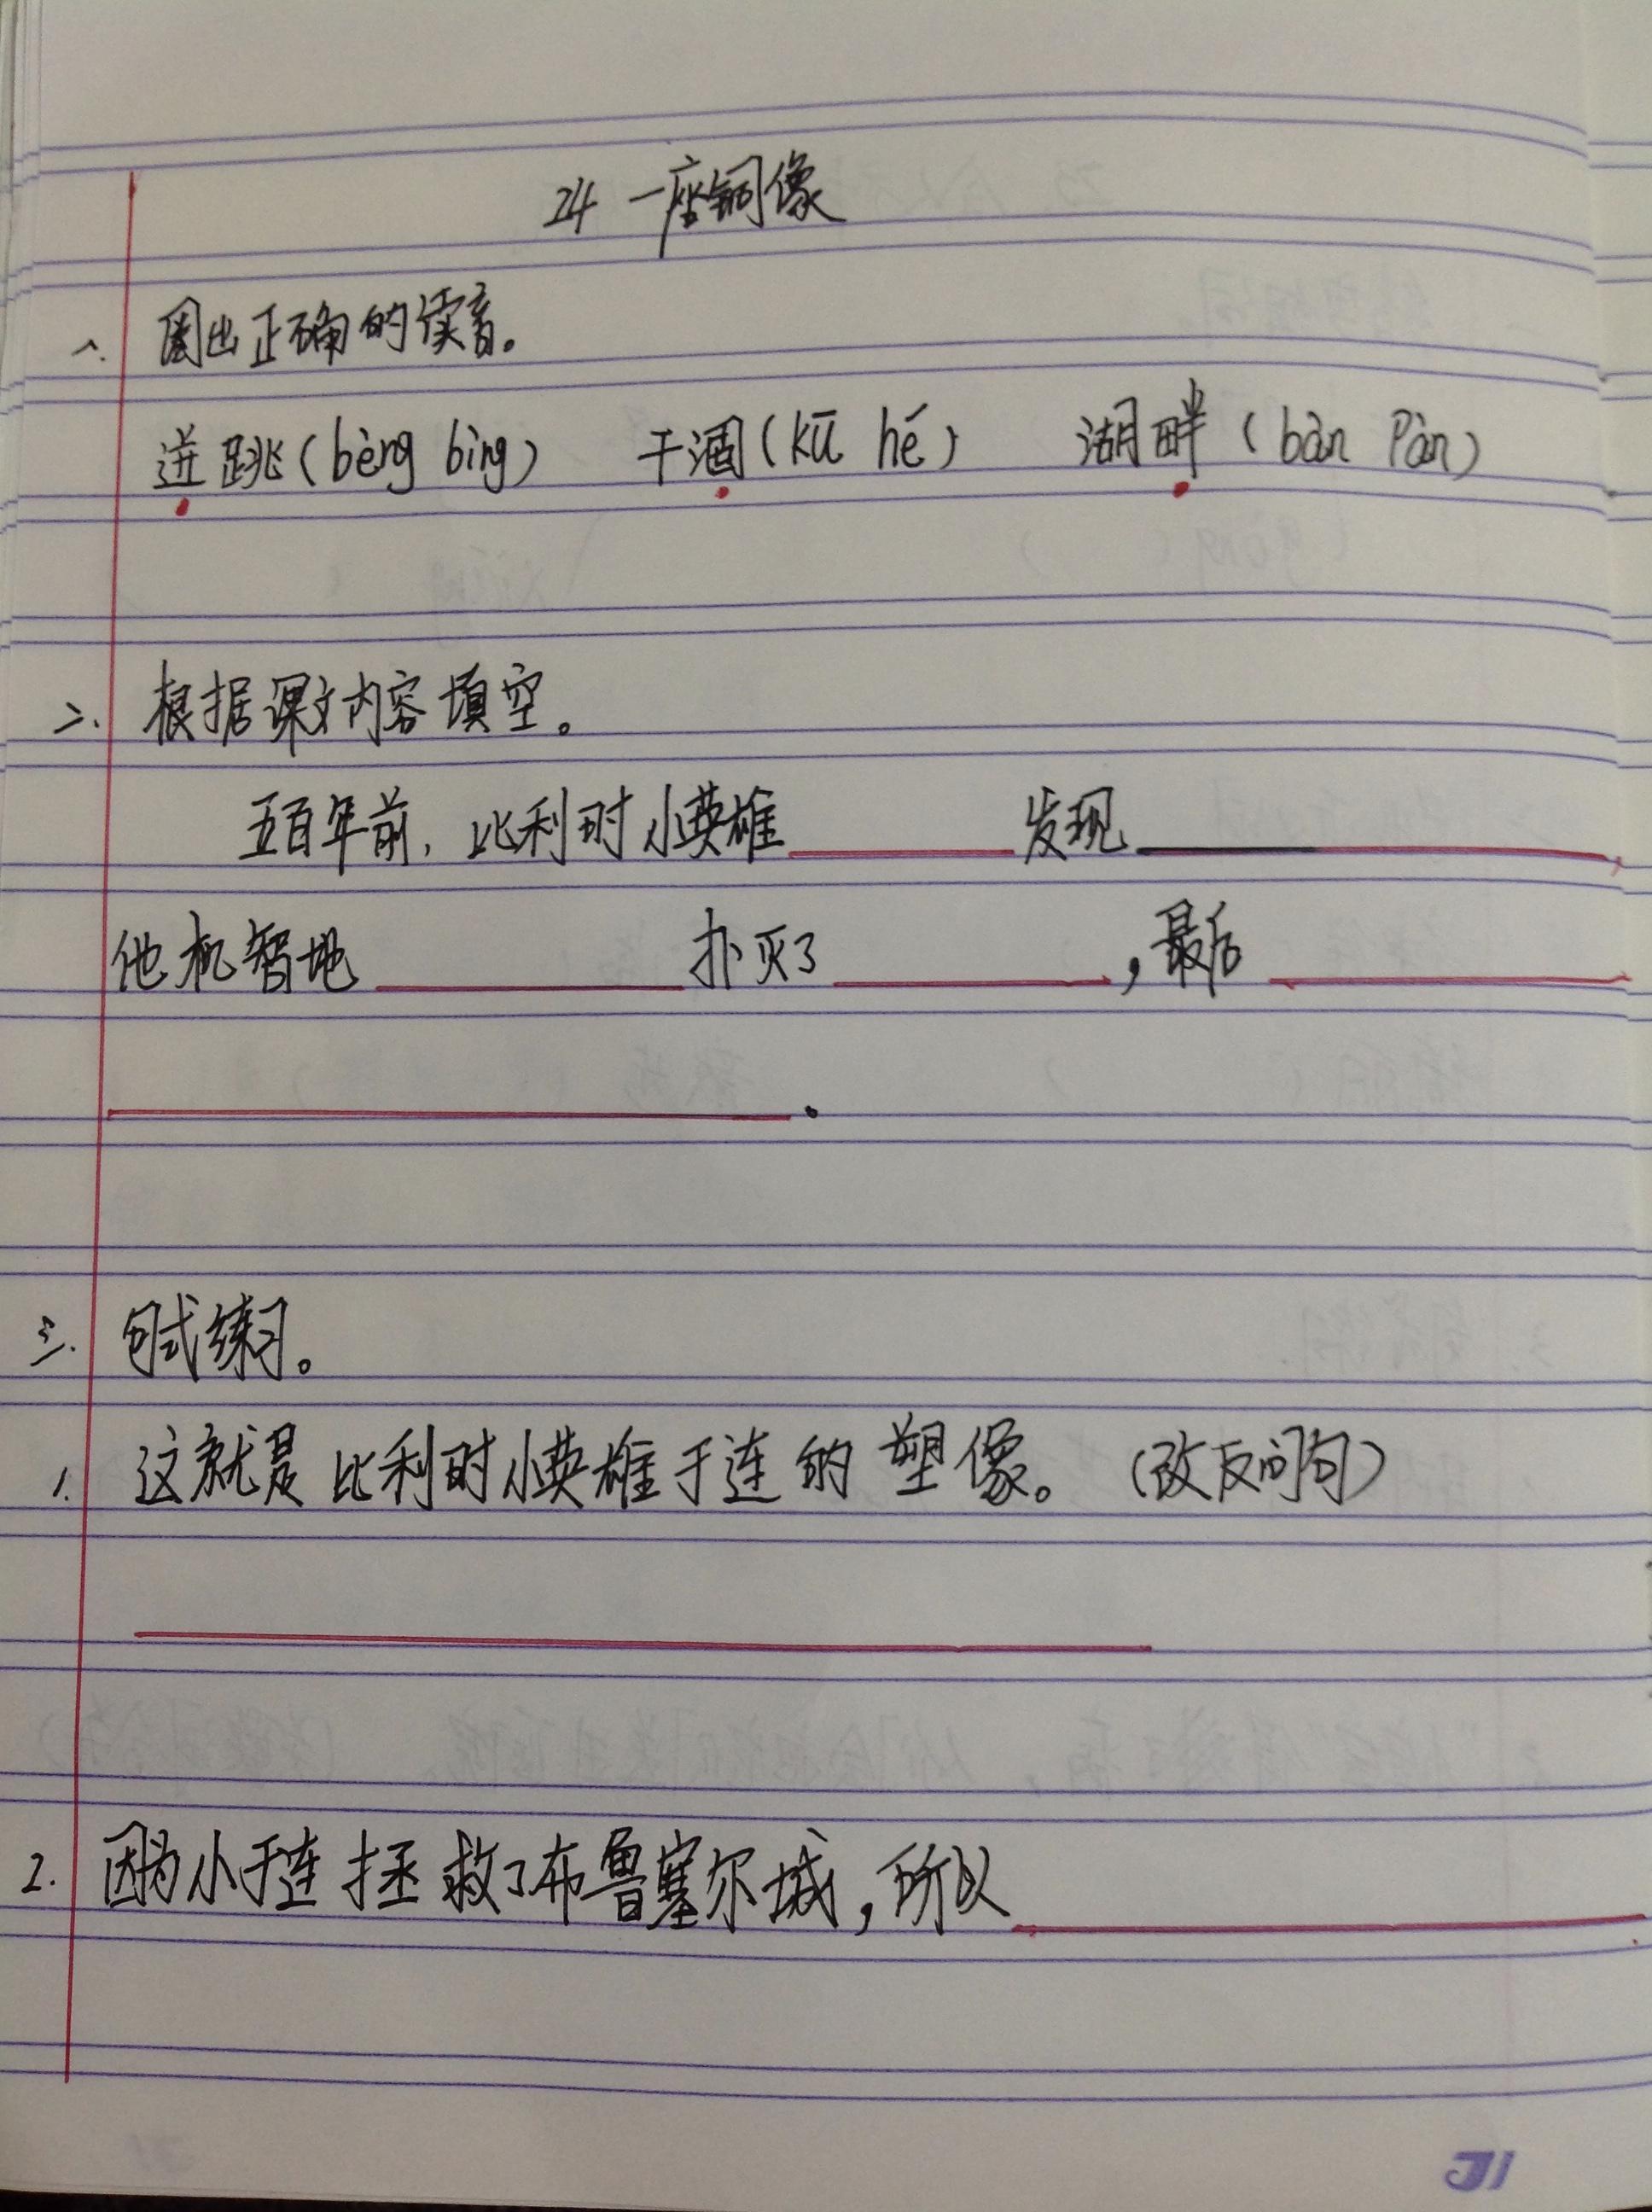 24 一座铜像
一. 圈出正确的读音。
迸跳(bèng bìng) 干涸(kū hé) 湖畔(bàn pàn)
二. 根据课文内容填空。
五百年前, 比利时小英雄 发现 ,
他机智地 扑灭了 ,最后
.
三. 句式练习。
1. 这就是比利时小英雄于连的塑像。(改反问句)
2. 因为小于连拯救了布鲁塞尔城,所以 .
31